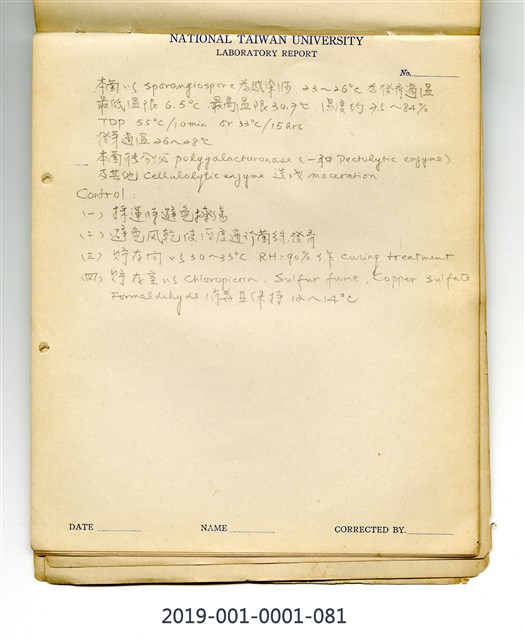 NATIONAL TAIWAN UNIVERSITY
LABORATORY REPORT
No.
本菌以 sporangiospore 為感染源 23~26°C 為發芽適溫
最低溫限 6.5°C 最高溫限 30.7°C 濕度約 75~84%
TDP 55°C/10min or 33°C/15hrs
發芽適溫 26~28°C
本菌能分泌 polygalacturonase (一種 Pectolytic enzyme)
及其他 Cellulolytic enzyme 造成 maceration
Control:
(一) 採運時避免擦傷
(二) 避免風乾使濕度適於菌絲發育
(三) 貯存前以 30~33°C RH:90% 作 Curing treatment
(四) 貯存室以 Chloropicrin, Sulfur fume, Copper sulfate
Formaldehyde 保持 12~14°C
DATE
NAME
CORRECTED BY.
2019-001-0001-081